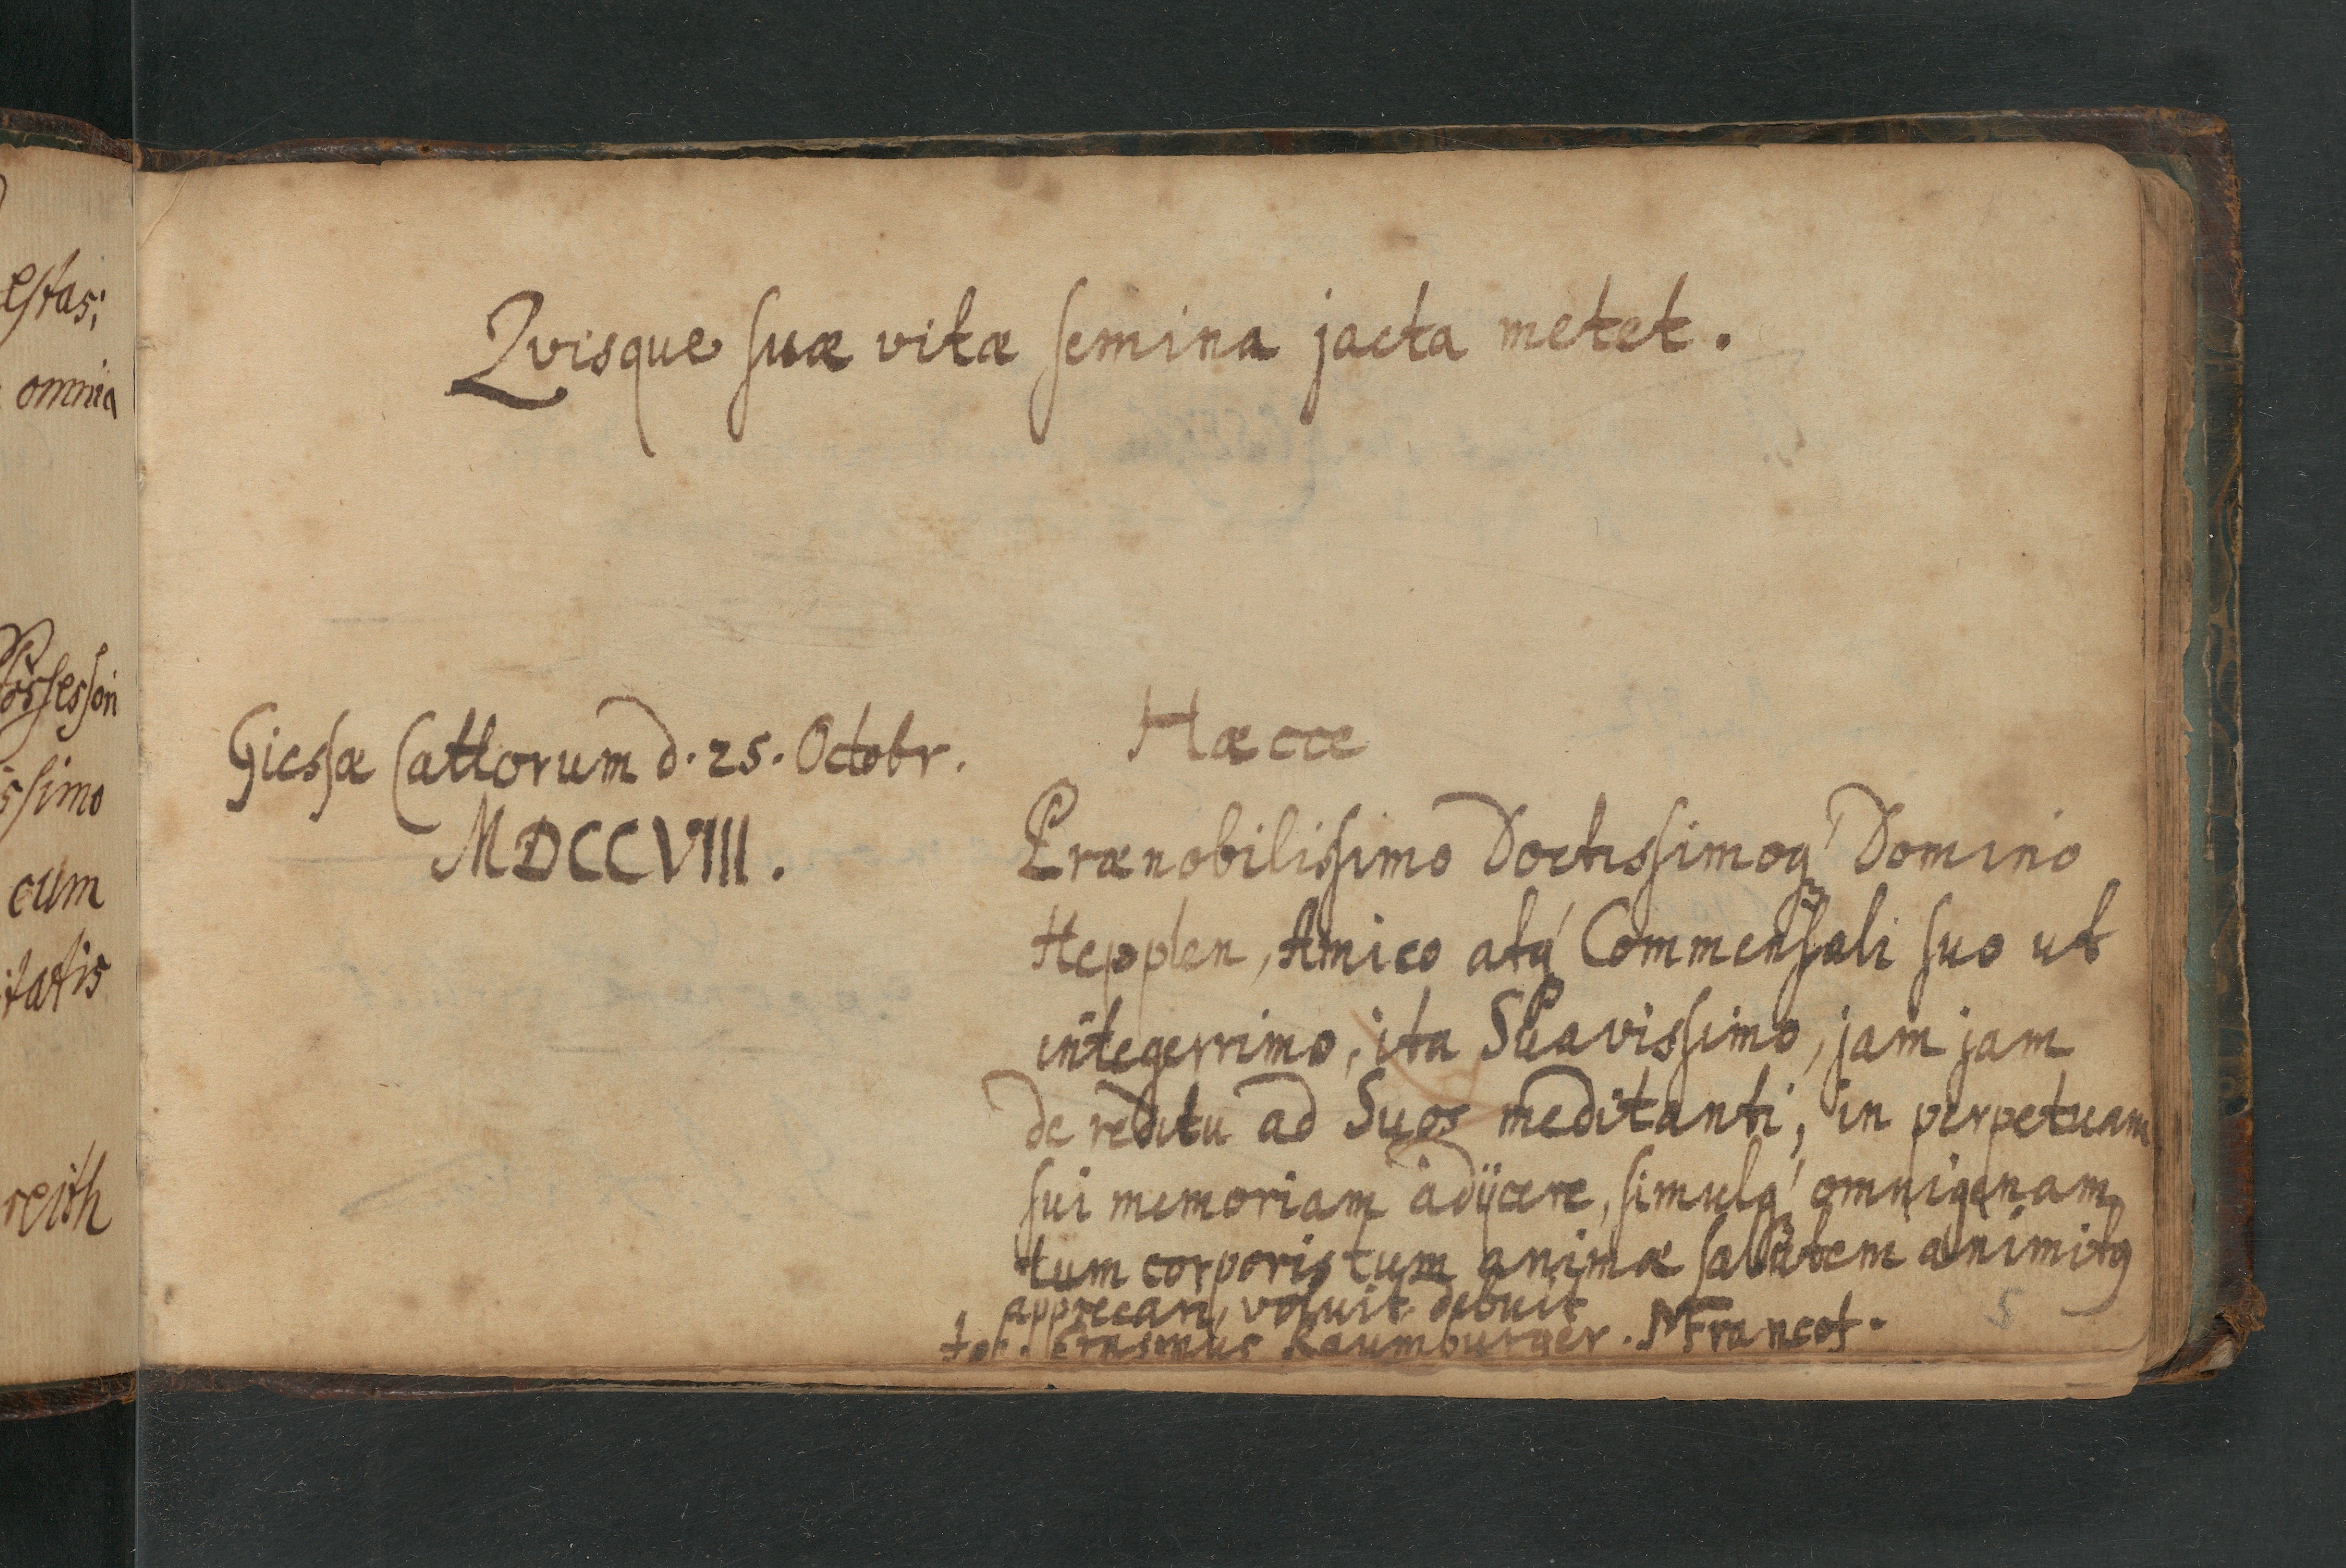 estas;
omnia
Possessori
issimo
cum
itatis
reith
Qvisque suæ vitæ semina jacta metet.
Giessæ Cattorum d. 25. Octobr.
MDCCVIII.
Hæcce
Prænobilissimo Doctissimoq́ Domino
Hepplen, Amico atq́ Commensali suo ut
integerrimo, ita Suavissimo, jam jam
de reditu ad Suos meditanti, in perpetuam
sui memoriam adijcere, simulq́ omnigenam
tum corporis tum animæ salutem animitq
apprecari, voluit debuit
Erasmus Raumburger. MFrancof.
5